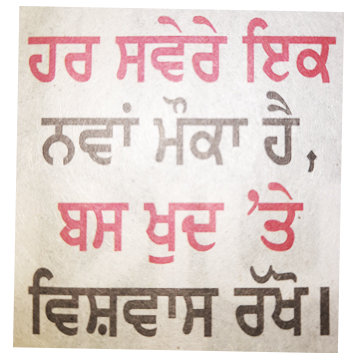 ਹਰ ਸਵੇਰੇ ਇਕ
ਨਵਾਂ ਮੌਕਾ ਹੈ,
ਬਸ ਖੁਦ 'ਤੇ
ਵਿਸ਼ਵਾਸ ਰੱਖੋ।